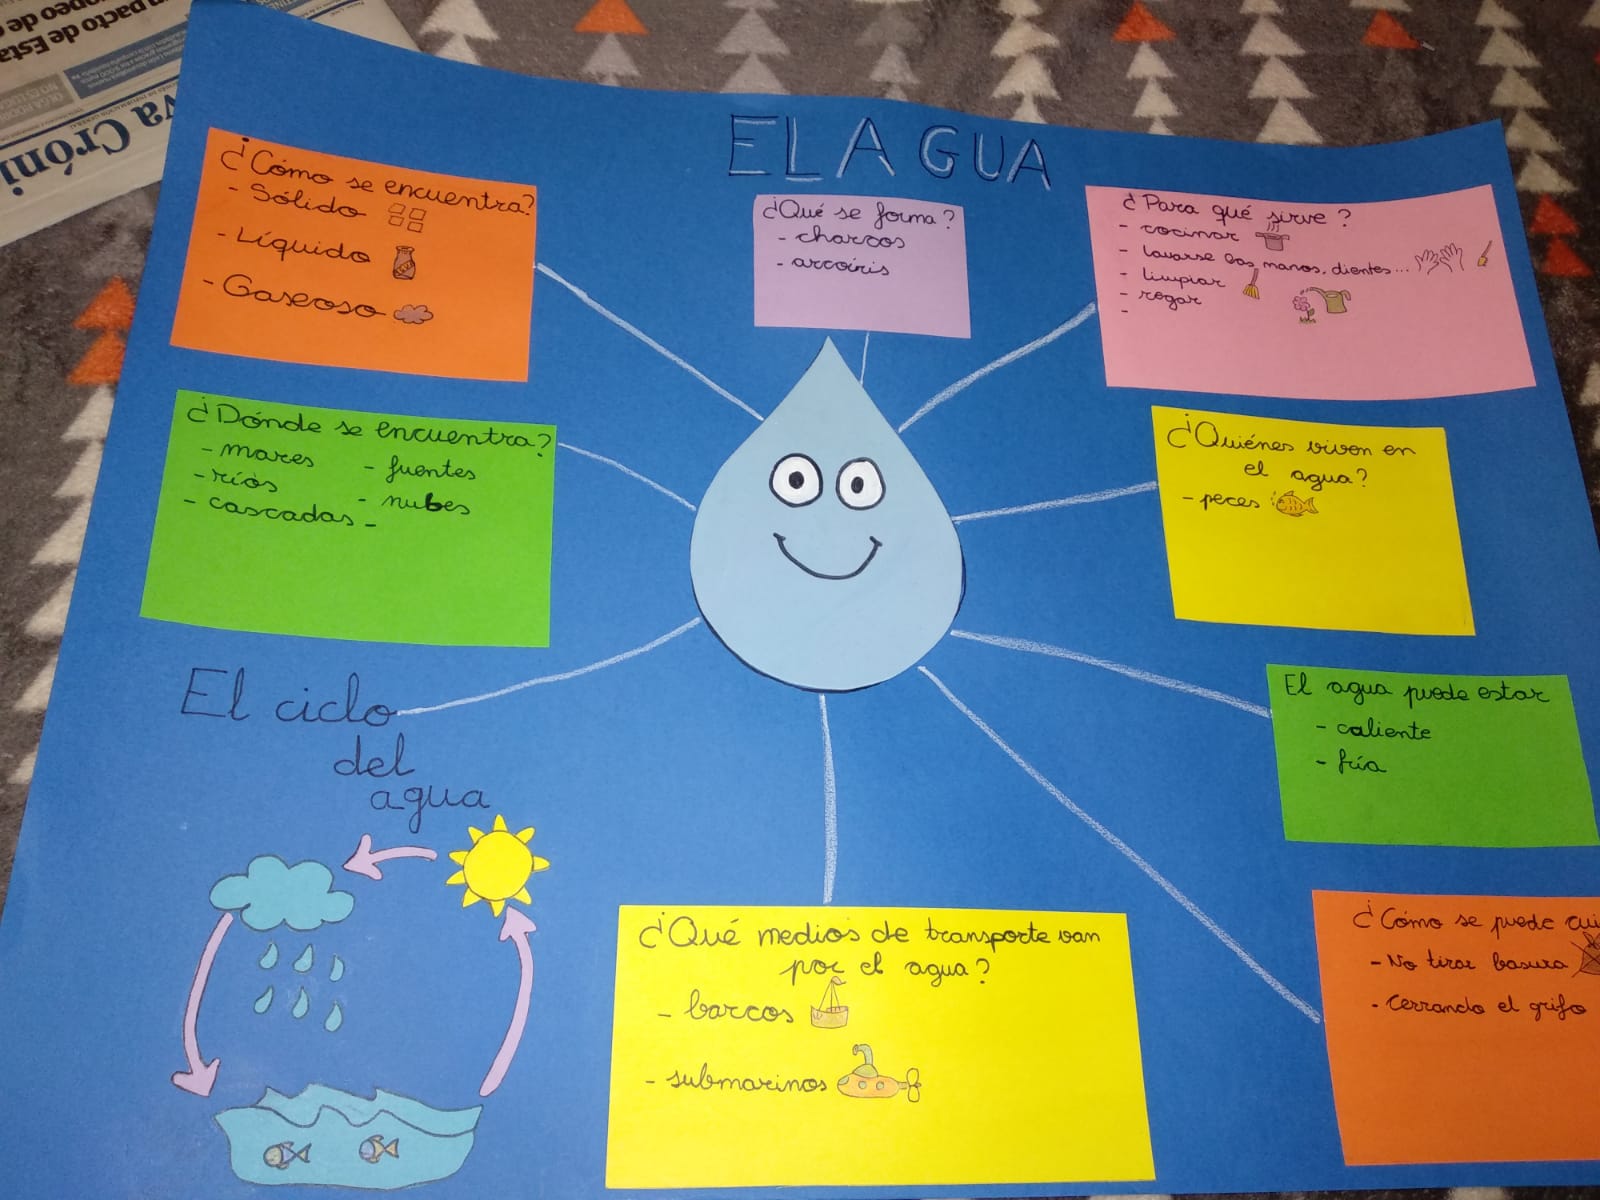 EL AGUA
¿Cómo se encuentra?
- Sólido
- Líquido
- Gaseoso
¿Qué se forma?
- charcos
- arcoíris
¿Para qué sirve?
- cocinar
- lavarse las manos, dientes...
- limpiar
- regar
-
¿Dónde se encuentra?
- mares
- ríos
- cascadas
- fuentes
- nubes
-
¿Quiénes viven en
el agua?
- peces
El agua puede estar
- caliente
- fría
El ciclo
del
agua
¿Qué medios de transporte van
por el agua?
- barcos
- submarinos
¿Cómo se puede cui
- No tirar basura
- Cerrando el grifo
va Cróni
pacto de Esta
opeo de